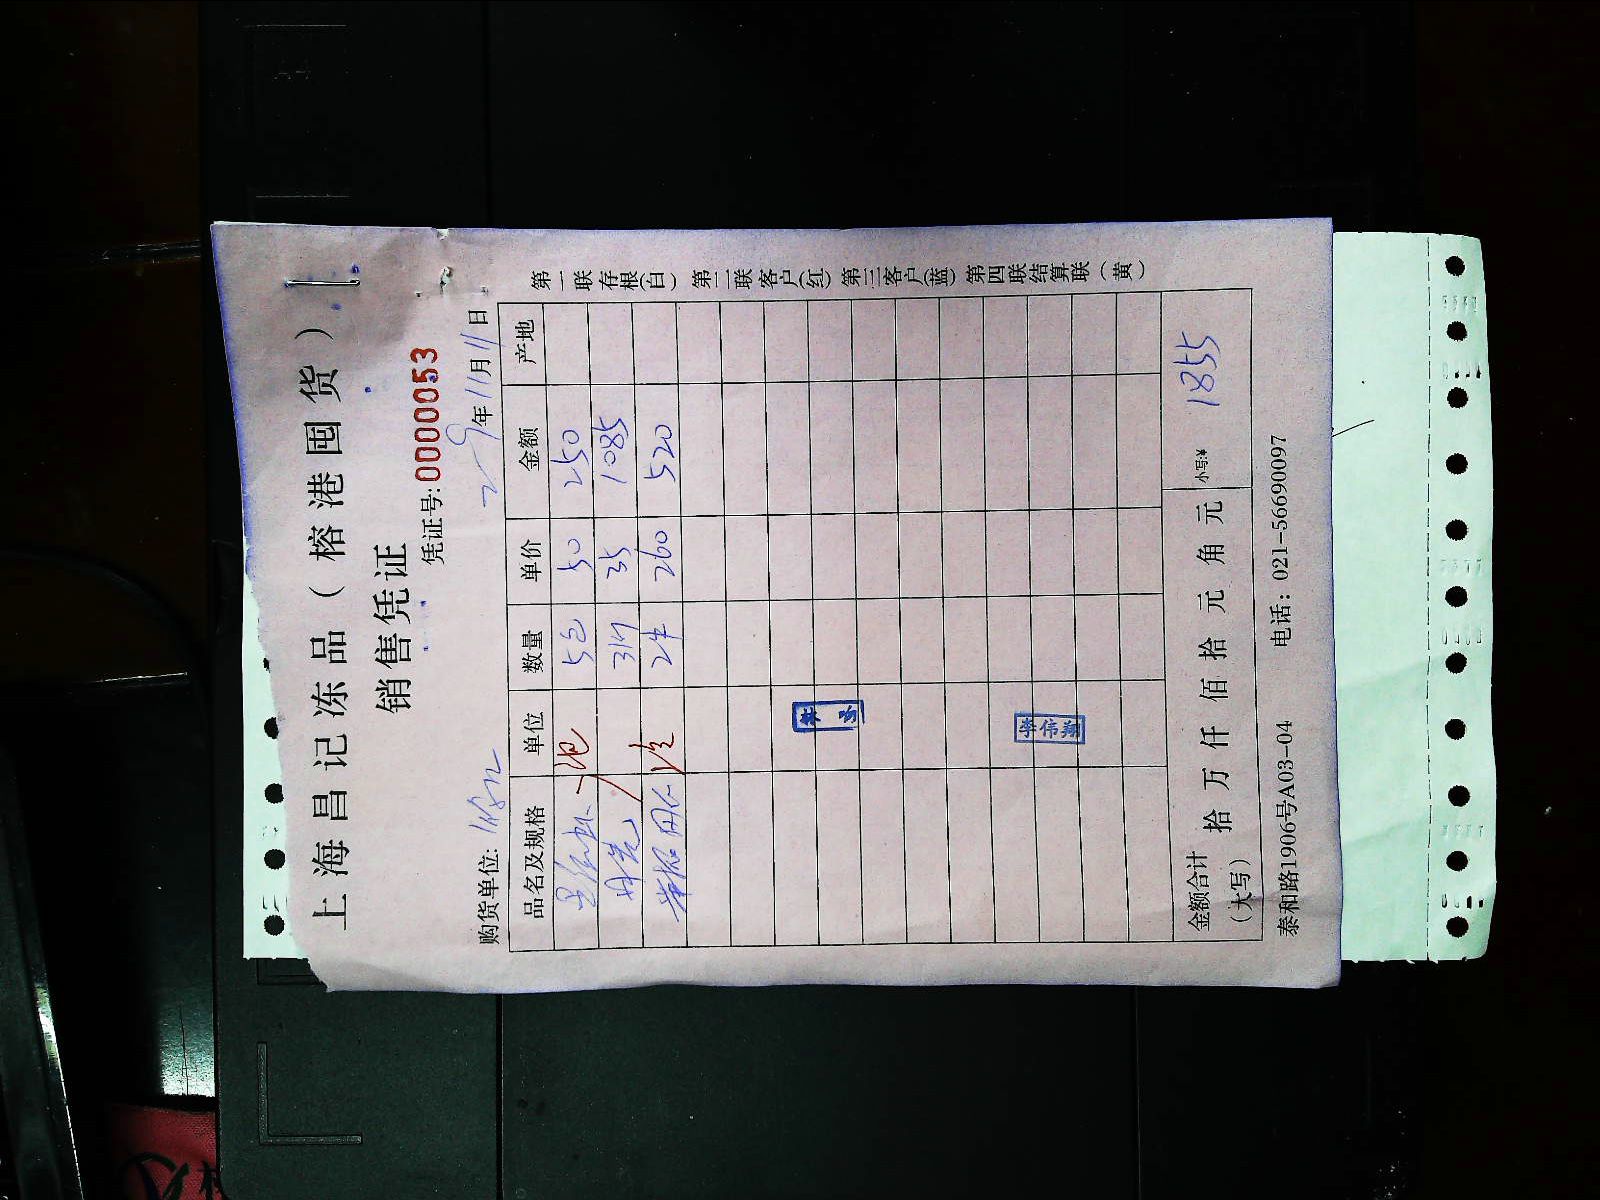 上海昌记冻品（榕港囤货）
销售凭证
凭证号:0000053
购货单位: 年11月11日
品名及规格 单位 数量 单价 金额 产地
5包 50 250
31斤 35 1085
2件 260 520
李伟翔
金额合计（大写） 拾 万 仟 佰 拾 元 角 元 小写:¥ 1855
泰和路1906号A03-04 电话：021-56690097
第一联存根(白) 第二联客户(红) 第三客户(蓝) 第四联结算联（黄）
A4